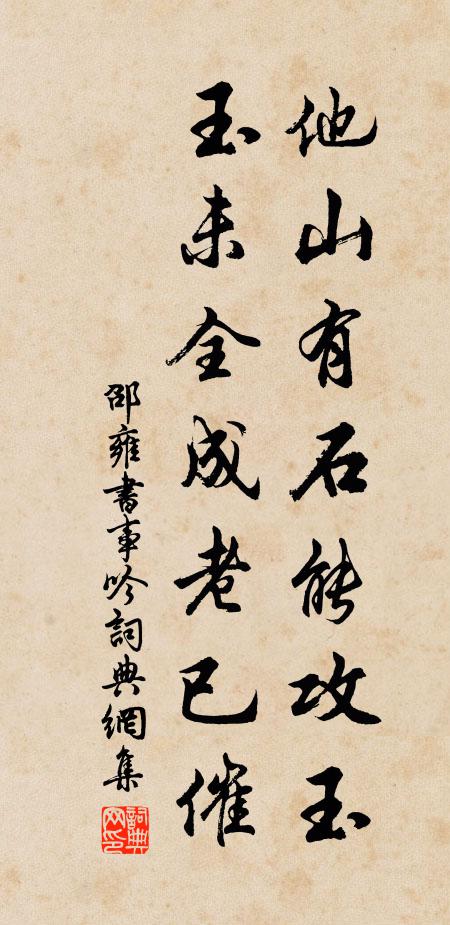 他山有石能攻玉
玉未全成老已催
邵雍書事吟詞典網集
詞典網印